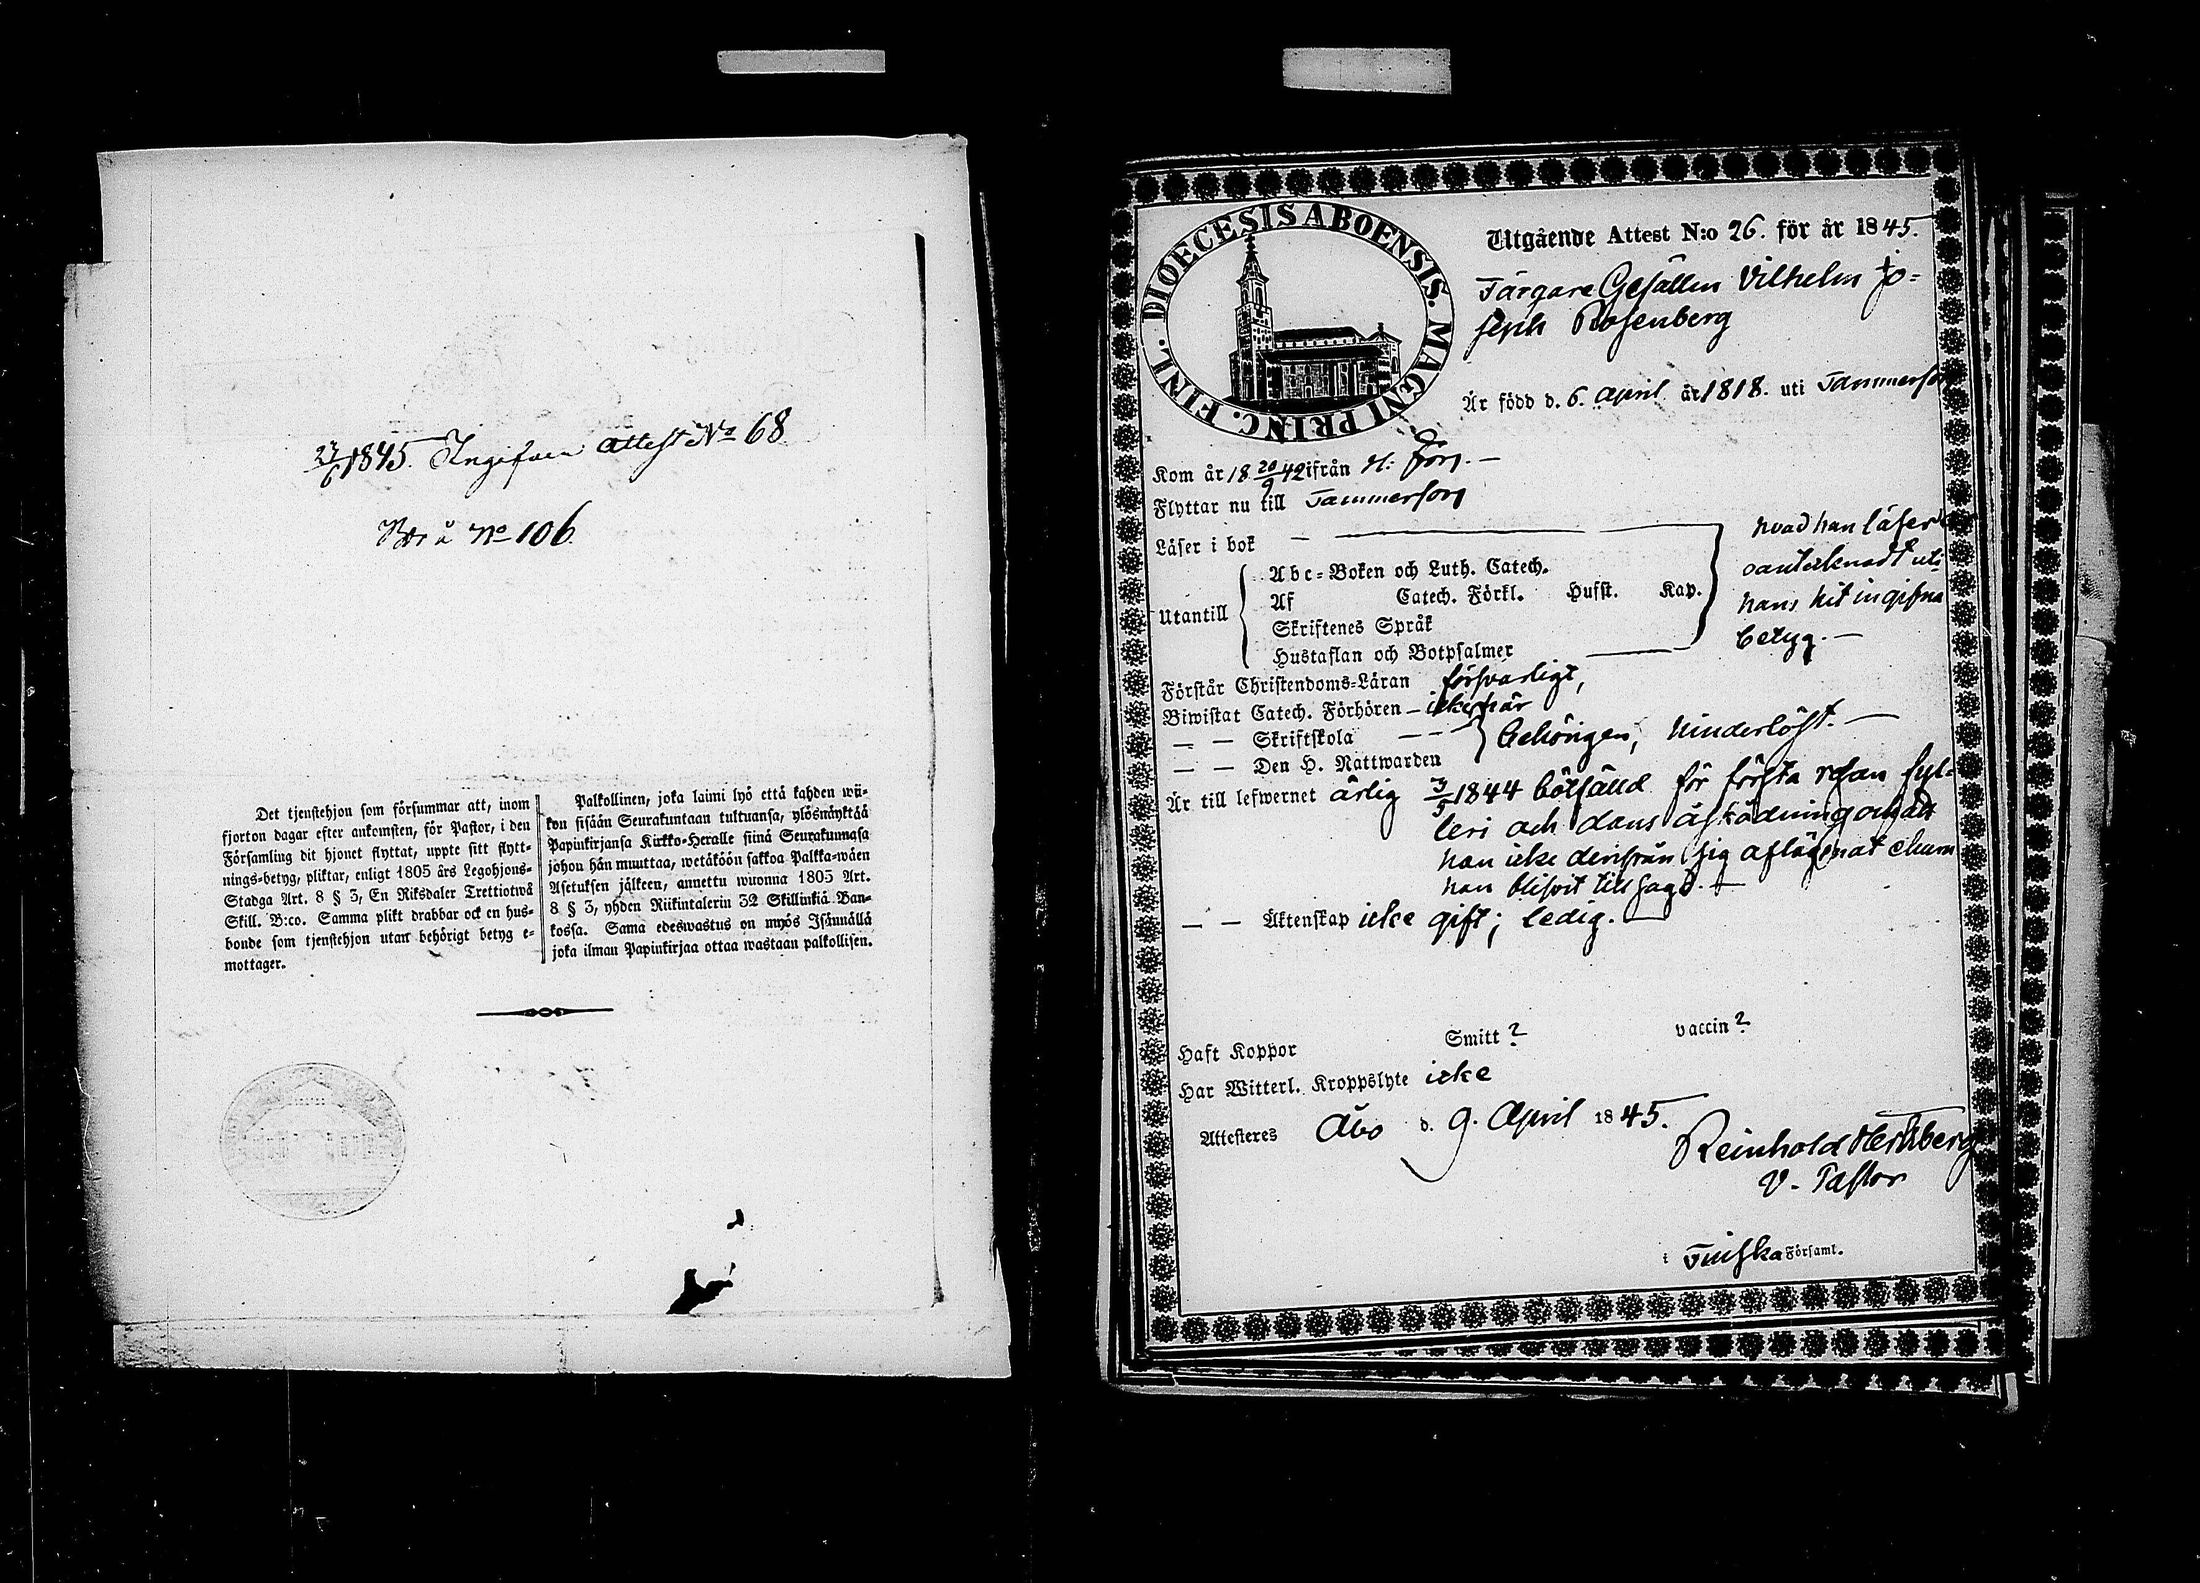 27/6 1845. Ingifven attest No 68
No 106.
Det tjenstehjon som försummar att, inom
fjorton dagar efter ankomsten, för Pastor, i den
Församling dit hjonet flyttat, uppte sitt flytt-
nings-betyg, pliktar, enligt 1805 års Legohjons-
Stadga Art. 8 § 3, En Riksdaler Trettiotwå
Skill. B:co. Samma plikt drabbar ock en hus-
bonde som tjenstehjon utan behörigt betyg e-
mottager.
Palkollinen, joka laimi lyö että kahden wii-
kon sisään Seurakuntaan tultuansa, ylösnäyttää
Papinkirjansa Kirkko-Heralle siinä Seurakunnasa
johon hän muuttaa, wetäköön sakkoa Palkka-wäen
Asetuksen jälkeen, annettu wuonna 1805 Art.
8 § 3, yhden Riikintalerin 32 Skillinkiä Ban-
kossa. Sama edeswastus on myös Isännällä
joka ilman Papinkirjaa ottaa wastaan palkollisen.
DIOECESIS ABOENSIS. MAGNI PRINC. FINL.
Utgående Attest N:o 26. för år 1845.
Färgare Gesällen Vilhelm Jo-
seph Rosenberg
Är född d. 6. April år 1818. uti Tammerfors
Kom år 18 20/9 42 ifrån H: fors. —
Flyttar nu till Tammerfors
Läser i bok
Utantill
Abc-Boken och Luth. Catech.
Af Catech. Förkl. Hufst. Kap.
Skriftenes Språk
Hustaflan och Botpsalmer
hvad han läser
uti
hans hit ingifna
betyg. —
Förstår Christendoms-Läran försvarligt,
Biwistat Catech. Förhören — icke här
— — Skriftskola — —
— — Den H. Nattwarden
behörigen, hinderlöst. —
Är till lefwernet ärlig 3/5 1844 bötfälld för första resan fyl-
leri och dans åskådning
han icke derifrån sig aflägsnat ehuru
han blifvit tillsagd. —
— — Äktenskap icke gift; ledig. —
Haft Koppor Smitt ? vaccin ?
Har Witterl. Kroppslyte icke
Attesteres Åbo d. 9. April 1845.
Reinhold Hertzberg
V. Pastor
i Finska Församl.